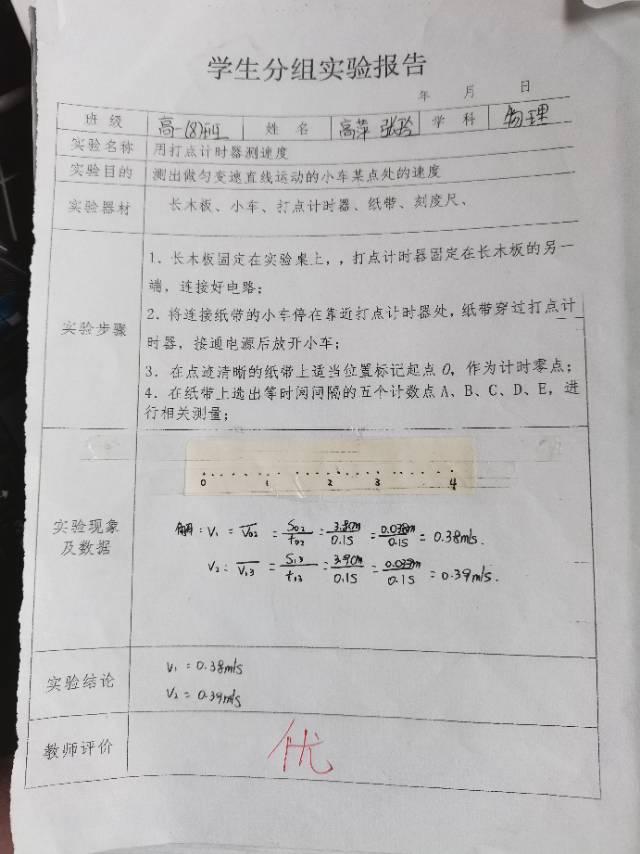 学生分组实验报告
年 月 日
班级 高一(8)班 姓名 高萍 张玲 学科 物理
实验名称 用打点计时器测速度
实验目的 测出做匀变速直线运动的小车某点处的速度
实验器材 长木板、小车、打点计时器、纸带、刻度尺、
1、长木板固定在实验桌上,,打点计时器固定在长木板的另一
端,连接好电路;
2、将连接纸带的小车停在靠近打点计时器处,纸带穿过打点计
时器,接通电源后放开小车;
实验步骤
3、在点迹清晰的纸带上适当位置标记起点O,作为计时零点;
4、在纸带上选出等时间间隔的五个计数点A、B、C、D、E,进
行相关测量;
0 1 2 3 4
实验现象
及数据
解:V₁ = V̅₀₂ = S₀₂/t₀₂ = 3.8cm/0.1s = 0.038m/0.1s = 0.38m/s.
V₂ = V̅₁₃ = S₁₃/t₁₃ = 3.9cm/0.1s = 0.039m/0.1s = 0.39m/s.
实验结论
V₁ = 0.38m/s
V₂ = 0.39m/s
教师评价 优